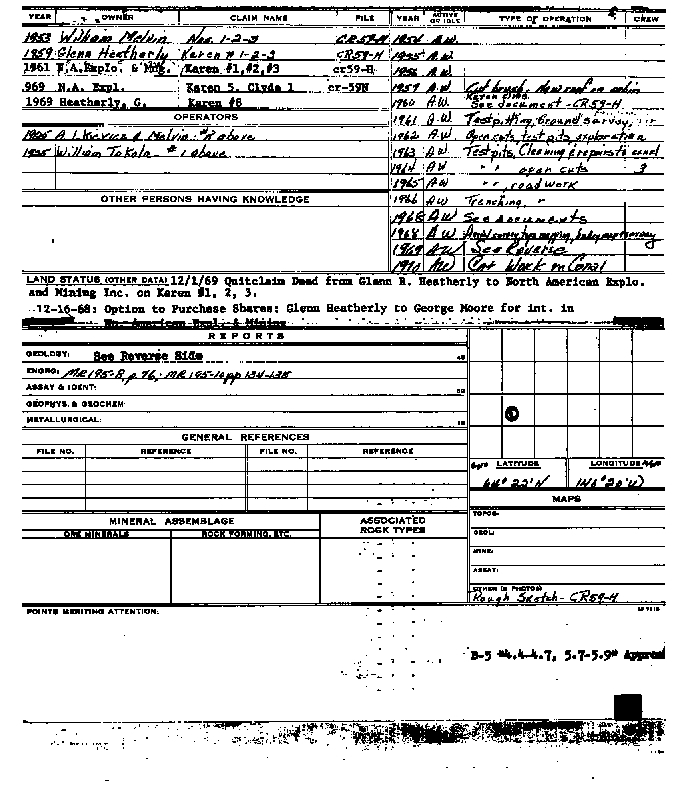 YEAR OWNER CLAIM NAME FILE YEAR ACTIVE OR IDLE TYPE OF OPERATION CREW
1953 William Melvin Nos. 1-2-3 CR59-H 1954 A.W.
1959 Glenn Heatherly Karen # 1-2-3 CR59-H 1955 A.W.
1961 N.A.Explo. & Mng. Karen #1,#2,#3 cr59-H 1956 A.W.
969 N.A. Expl. Karen 5. Clyde 1 cr-59N 1959 A.W. Cut brush, on cabin
1969 Heatherly, G. Karen #8 1960 A.W. See document - CR59-H
OPERATORS 1961 A.W. Testpitting, Ground survey,
Melvin # above 1962 A.W. Open cuts, test pits, exploration
1935 William # 1 above 1963 A.W. Test pits, Cleaning & repairs to
1964 A.W. " " open cuts 3
1965 A.W. " " , road work
OTHER PERSONS HAVING KNOWLEDGE 1966 A.W. Trenching, "
1968 A.W. See documents
1968 A.W.
1969 A.W. See Reverse
1970 A.W. Cat Work on
LAND STATUS (OTHER DATA) 12/1/69 Quitclaim Deed from Glenn R. Heatherly to North American Explo.
and Mining Inc. on Karen #1, 2, 3.
12-16-68: Option to Purchase Shares: Glenn Heatherly to George Moore for int. in
No. American Expl. & Mining
REPORTS
GEOLOGY: See Reverse Side
ENGRG: MR195-8, p 76; MR 195-10 pp 134-135
ASSAY & IDENT:
GEOPHYS. & GEOCHEM:
METALLURGICAL:
GENERAL REFERENCES
FILE NO. REFERENCE FILE NO. REFERENCE
LATITUDE LONGITUDE
22'N 146°20'W
MAPS
MINERAL ASSEMBLAGE ASSOCIATED ROCK TYPES
ORE MINERALS ROCK FORMING, ETC.
TOPOG:
GEOL:
MINE:
ASSAY:
OTHER (& PHOTOS)
Rough Sketch - CR59-H
POINTS MERITING ATTENTION:
B-5 "4.4-4.7, 5.7-5.9" Approx